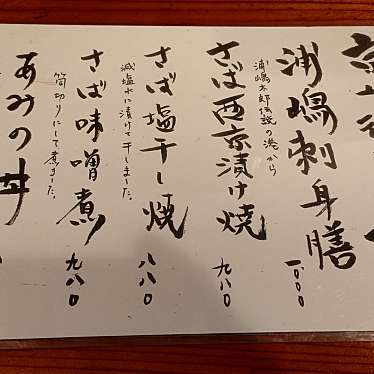 浦嶋刺身膳 一、000
浦嶋太郎伝説の港から
さば西京漬け焼 九八0
さば塩干し焼 八八0
減塩水に漬けて干しました。
さば味噌煮 九八0
筒切りにして煮ました。
あみの丼